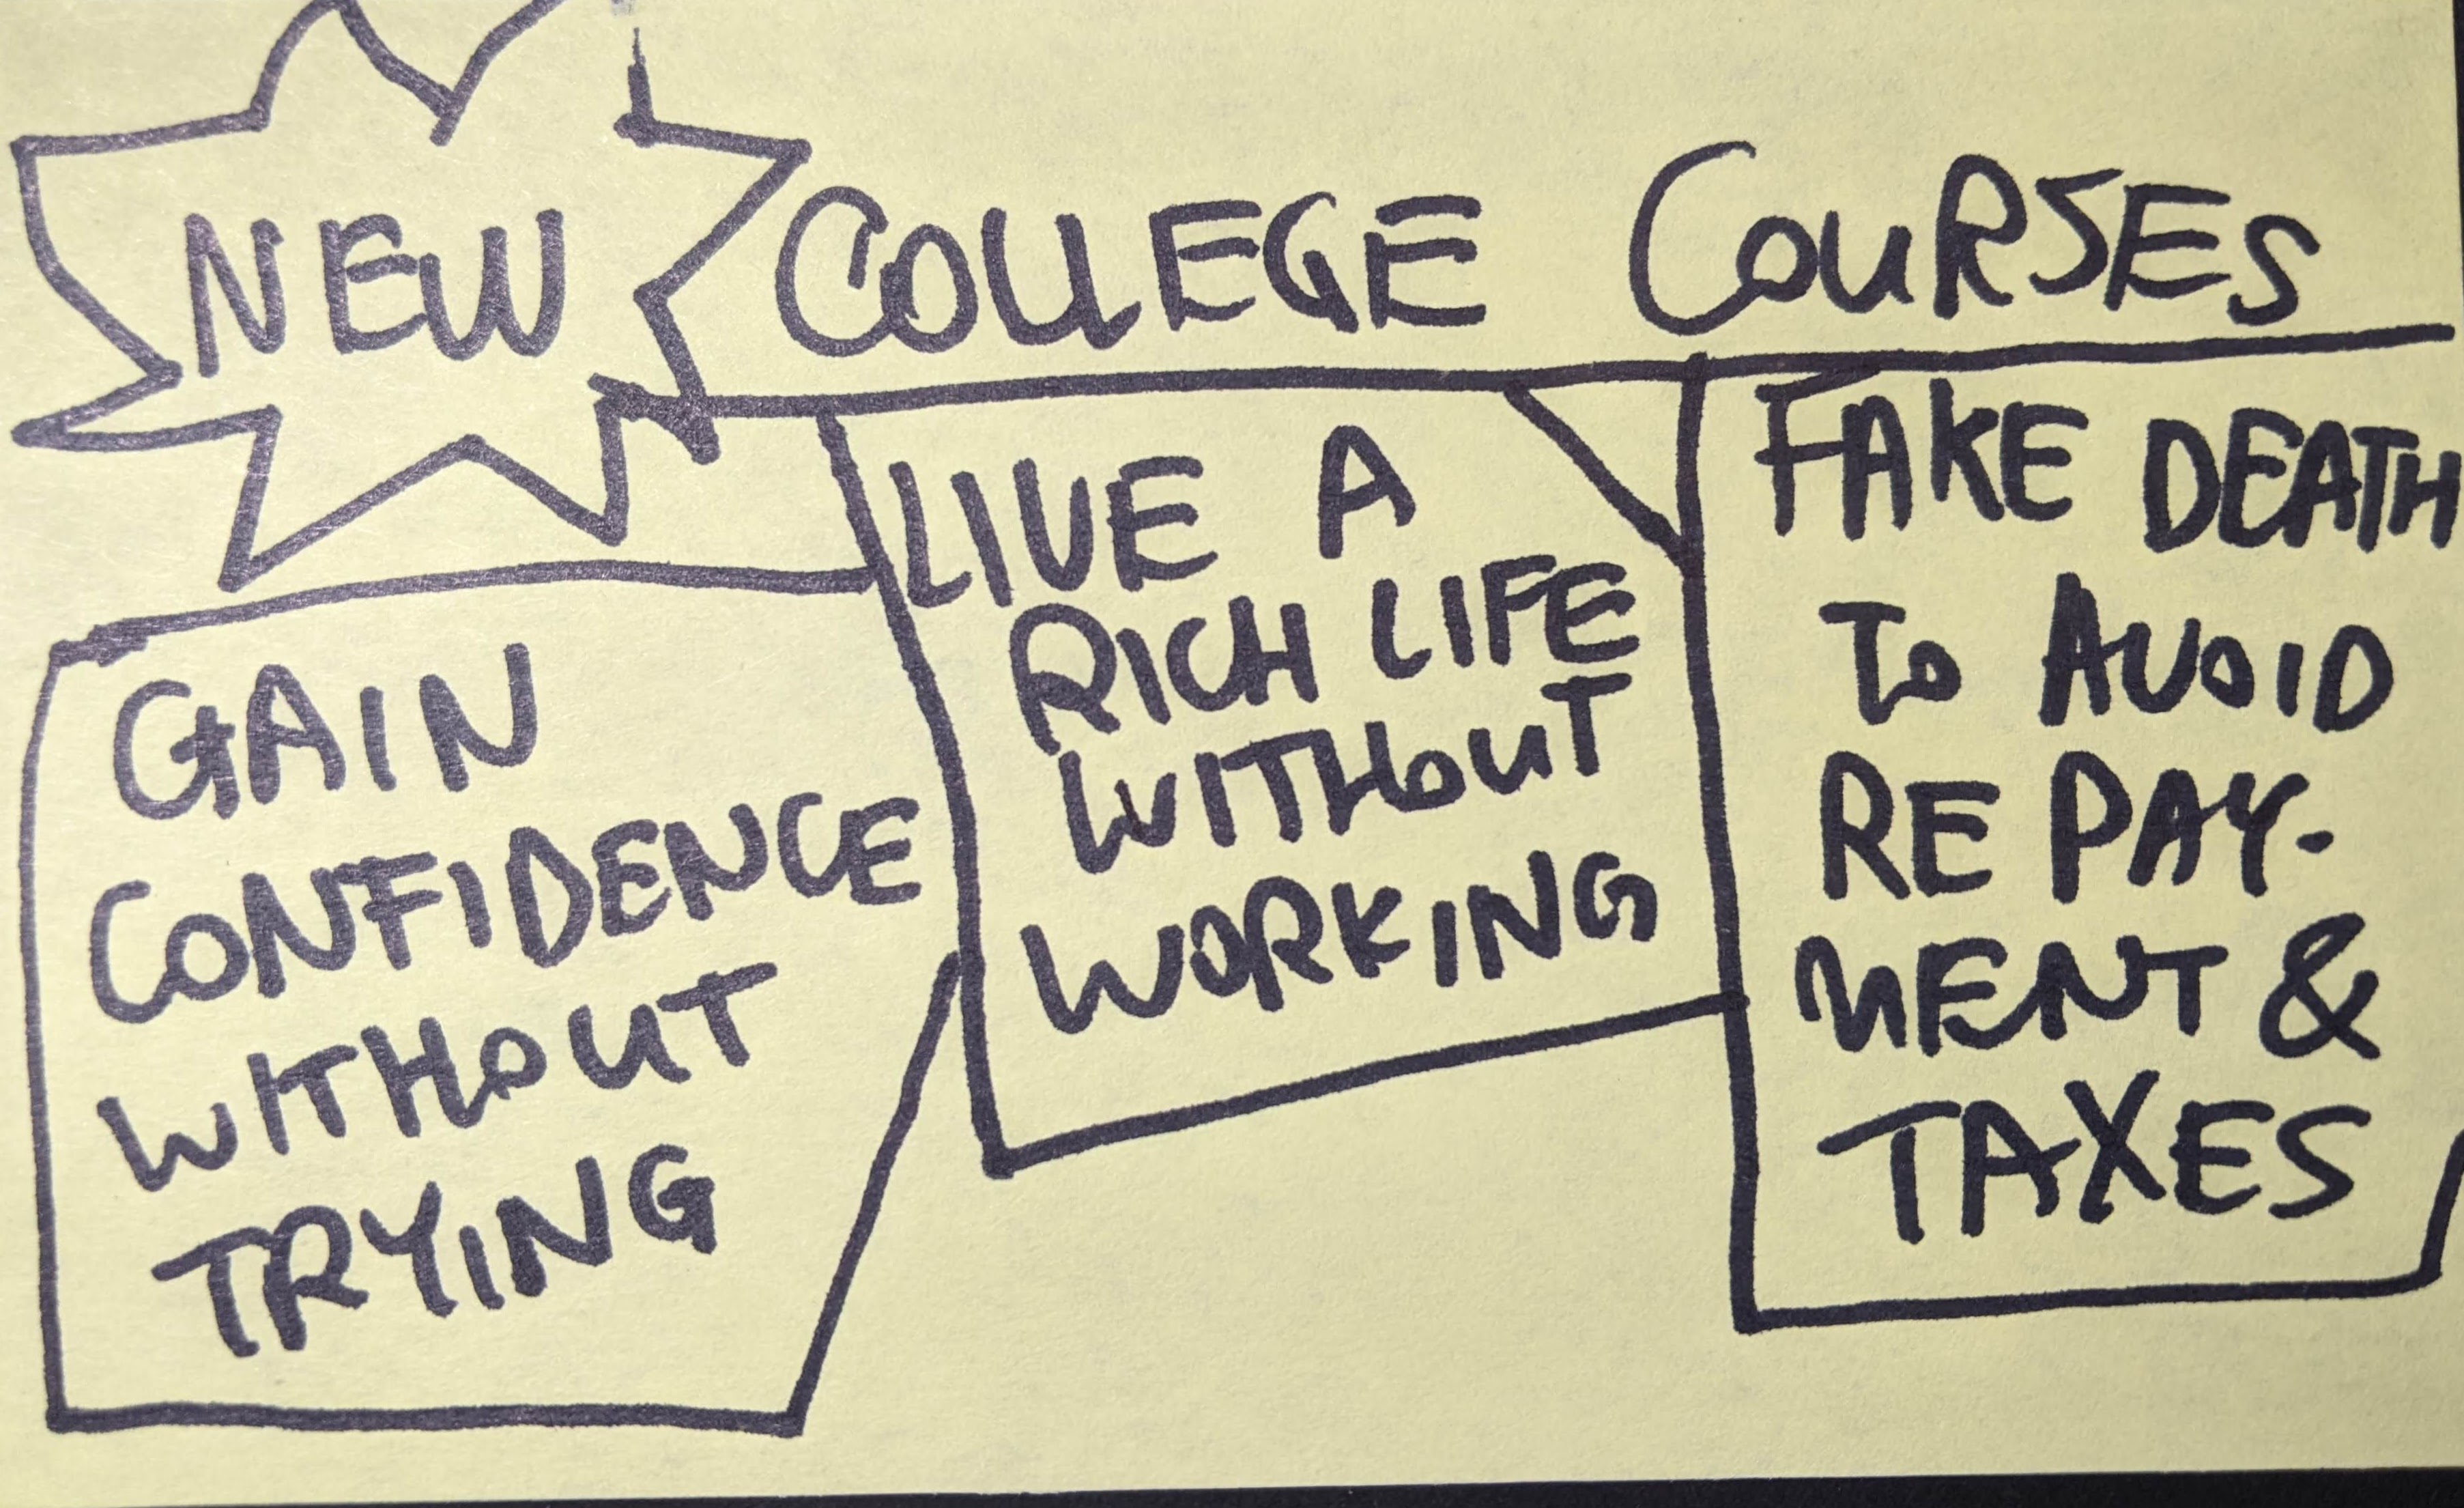 NEW COLLEGE COURSES
GAIN
CONFIDENCE
WITHOUT
TRYING
LIVE A
RICH LIFE
WITHOUT
WORKING
FAKE DEATH
TO AVOID
RE PAY-
MENT &
TAXES